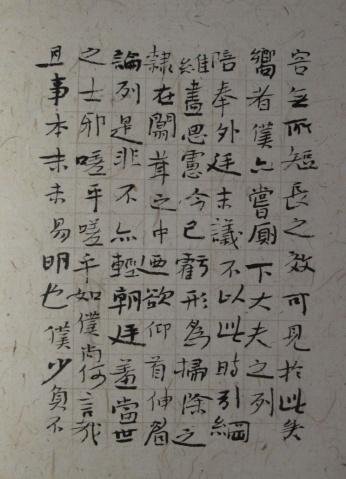 容無所短長之效可見於此矣
嚮者僕亦嘗廁下大夫之列
陪奉外廷末議不以此時引綱
維盡思慮今已虧形為掃除之
隸在闒茸之中迺欲仰首伸眉
論列是非不亦輕朝廷羞當世
之士邪嗟乎嗟乎如僕尚何言哉
且事本末未易明也僕少負不